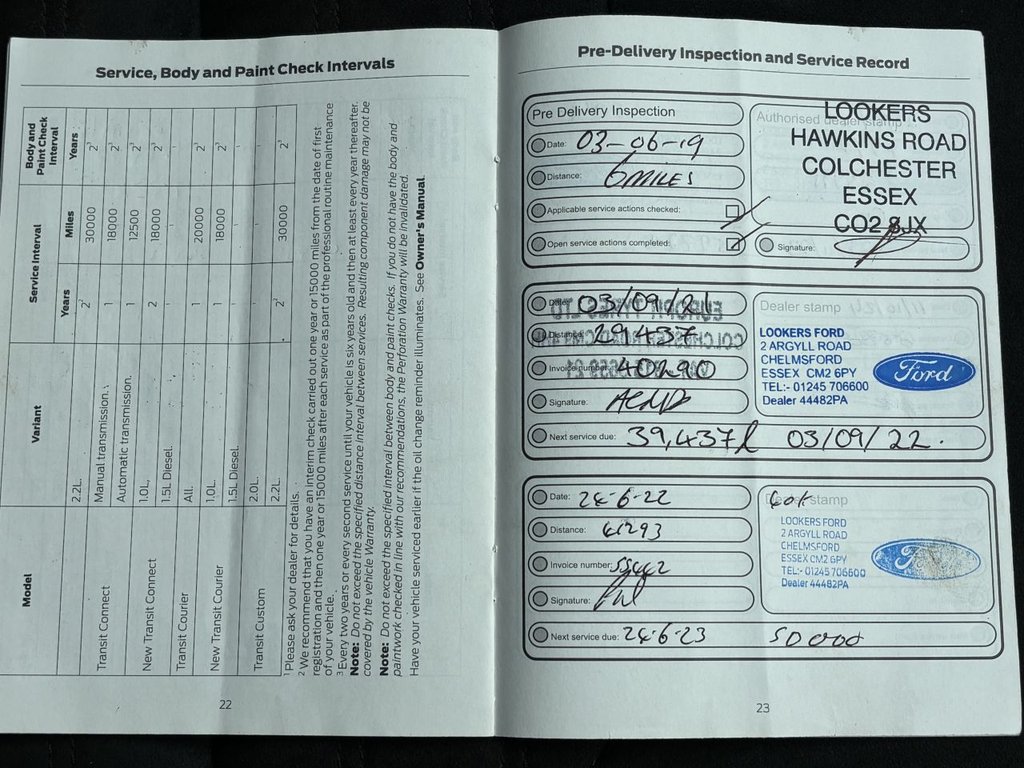 Service, Body and Paint Check Intervals
Model
Variant
Service Interval
Body and Paint Check Interval
Years
Miles
Years
2.2L.
2²
30000
2³
Transit Connect
Manual transmission.
1
18000
2³
Automatic transmission.
1
12500
2³
New Transit Connect
1.0L,
1.5L Diesel.
2
18000
2³
Transit Courier
All.
1
20000
2³
New Transit Courier
1.0L.
1.5L Diesel.
1
18000
2³
Transit Custom
2.0L.
2.2L.
2²
30000
2³
¹ Please ask your dealer for details.
² We recommend that you have an interim check carried out one year or 15000 miles from the date of first
registration and then one year or 15000 miles after each service as part of the professional routine maintenance
of your vehicle.
³ Every two years or every second service until your vehicle is six years old and then at least every year thereafter.
Note: Do not exceed the specified distance interval between services. Resulting component damage may not be
covered by the vehicle Warranty.
Note: Do not exceed the specified interval between body and paint checks. If you do not have the body and
paintwork checked in line with our recommendations, the Perforation Warranty will be invalidated.
Have your vehicle serviced earlier if the oil change reminder illuminates. See Owner's Manual.
22
Pre-Delivery Inspection and Service Record
Pre Delivery Inspection
Date: 03-06-19
Distance: 6 MILES
Applicable service actions checked:
Open service actions completed:
Authorised dealer stamp
LOOKERS
HAWKINS ROAD
COLCHESTER
ESSEX
CO2 8JX
Signature:
Date: 03/09/21
Distance: 29,437
Invoice number: 40290
Signature:
Next service due: 39,437 03/09/22.
Dealer stamp
LOOKERS FORD
2 ARGYLL ROAD
CHELMSFORD
ESSEX CM2 6PY
TEL:- 01245 706600
Dealer 44482PA
Ford
Date: 24-6-22
Distance: 41293
Invoice number:
Signature:
Next service due: 24-6-23 50000
Dealer stamp
LOOKERS FORD
2 ARGYLL ROAD
CHELMSFORD
ESSEX CM2 6PY
TEL:- 01245 706600
Dealer 44482PA
23